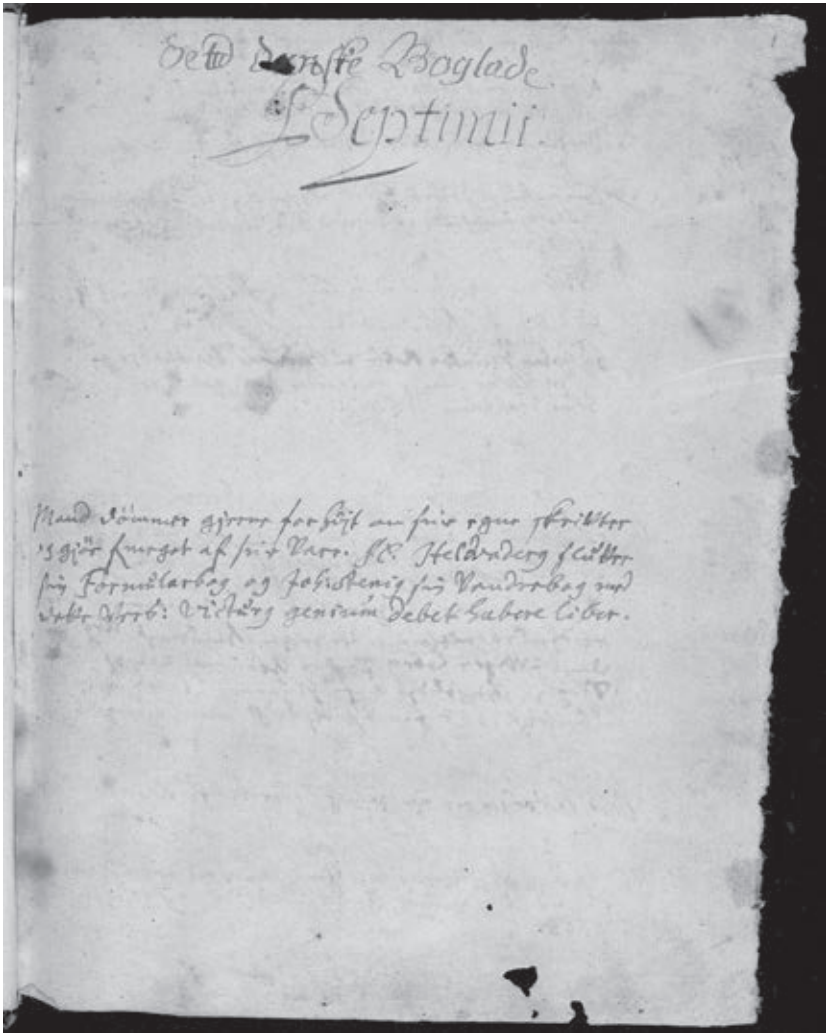 Dend danske Boglade
L Septimii.
Mand dömmer gierne for höjt om sine egne skrifter
og giör meget af sine Vare. Sl. Helvaderg slutter
sin Formularbog og sin Vandrebog med
dette Vers: Victurg genium debet habere liber.